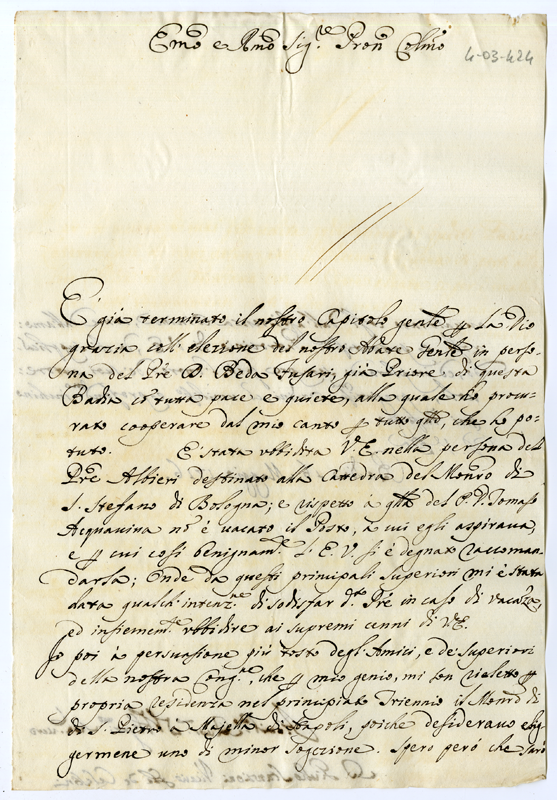 Emo e Rmo Sig.re Pron Colmo
4-03-424
E' già terminato il nostro Capitolo gen̄le p̱ la Dio
grazia coll' elezzione del nostro Abate Gen̄le in perso-
na del Pre D. Beda Fusari, già Priore di questa
Badia co' tutta pace e quiete, alla quale hò procu-
rato cooperare dal mio canto p̱ tutto q̄llo, che hò po-
tuto. E' stata ubbidita V.E. nella persona del
Pre Altieri destinato alla Cattedra del Monro di
S. Stefano di Bologna; e rispetto à q̄lla del P. D. Tomaso
Acquaviva no' è vacato il Posto, à cui egli aspirava,
e p̱ cui così benignam.te l' E. V. si è degnata raccoman-
darla; Onde da questi principali Superiori mi è stata
data qualch' intenz.ne di sodisfar d.to Pre in caso di vacaza,
ed insiemem.te ubbidire ai supremi cenni di V.E.
Io poi à persuasione più tosto degl' Amici, e de Superiori
della nostra Cong.ne, che p̱ mio genio, mi son rieletto p̱
propria residenza nel principiato Triennio il Monro di
di S. Pietro à Majella di Napoli, poiche desideravo elig-
germene uno di minor sogezione. Spero però che sarò